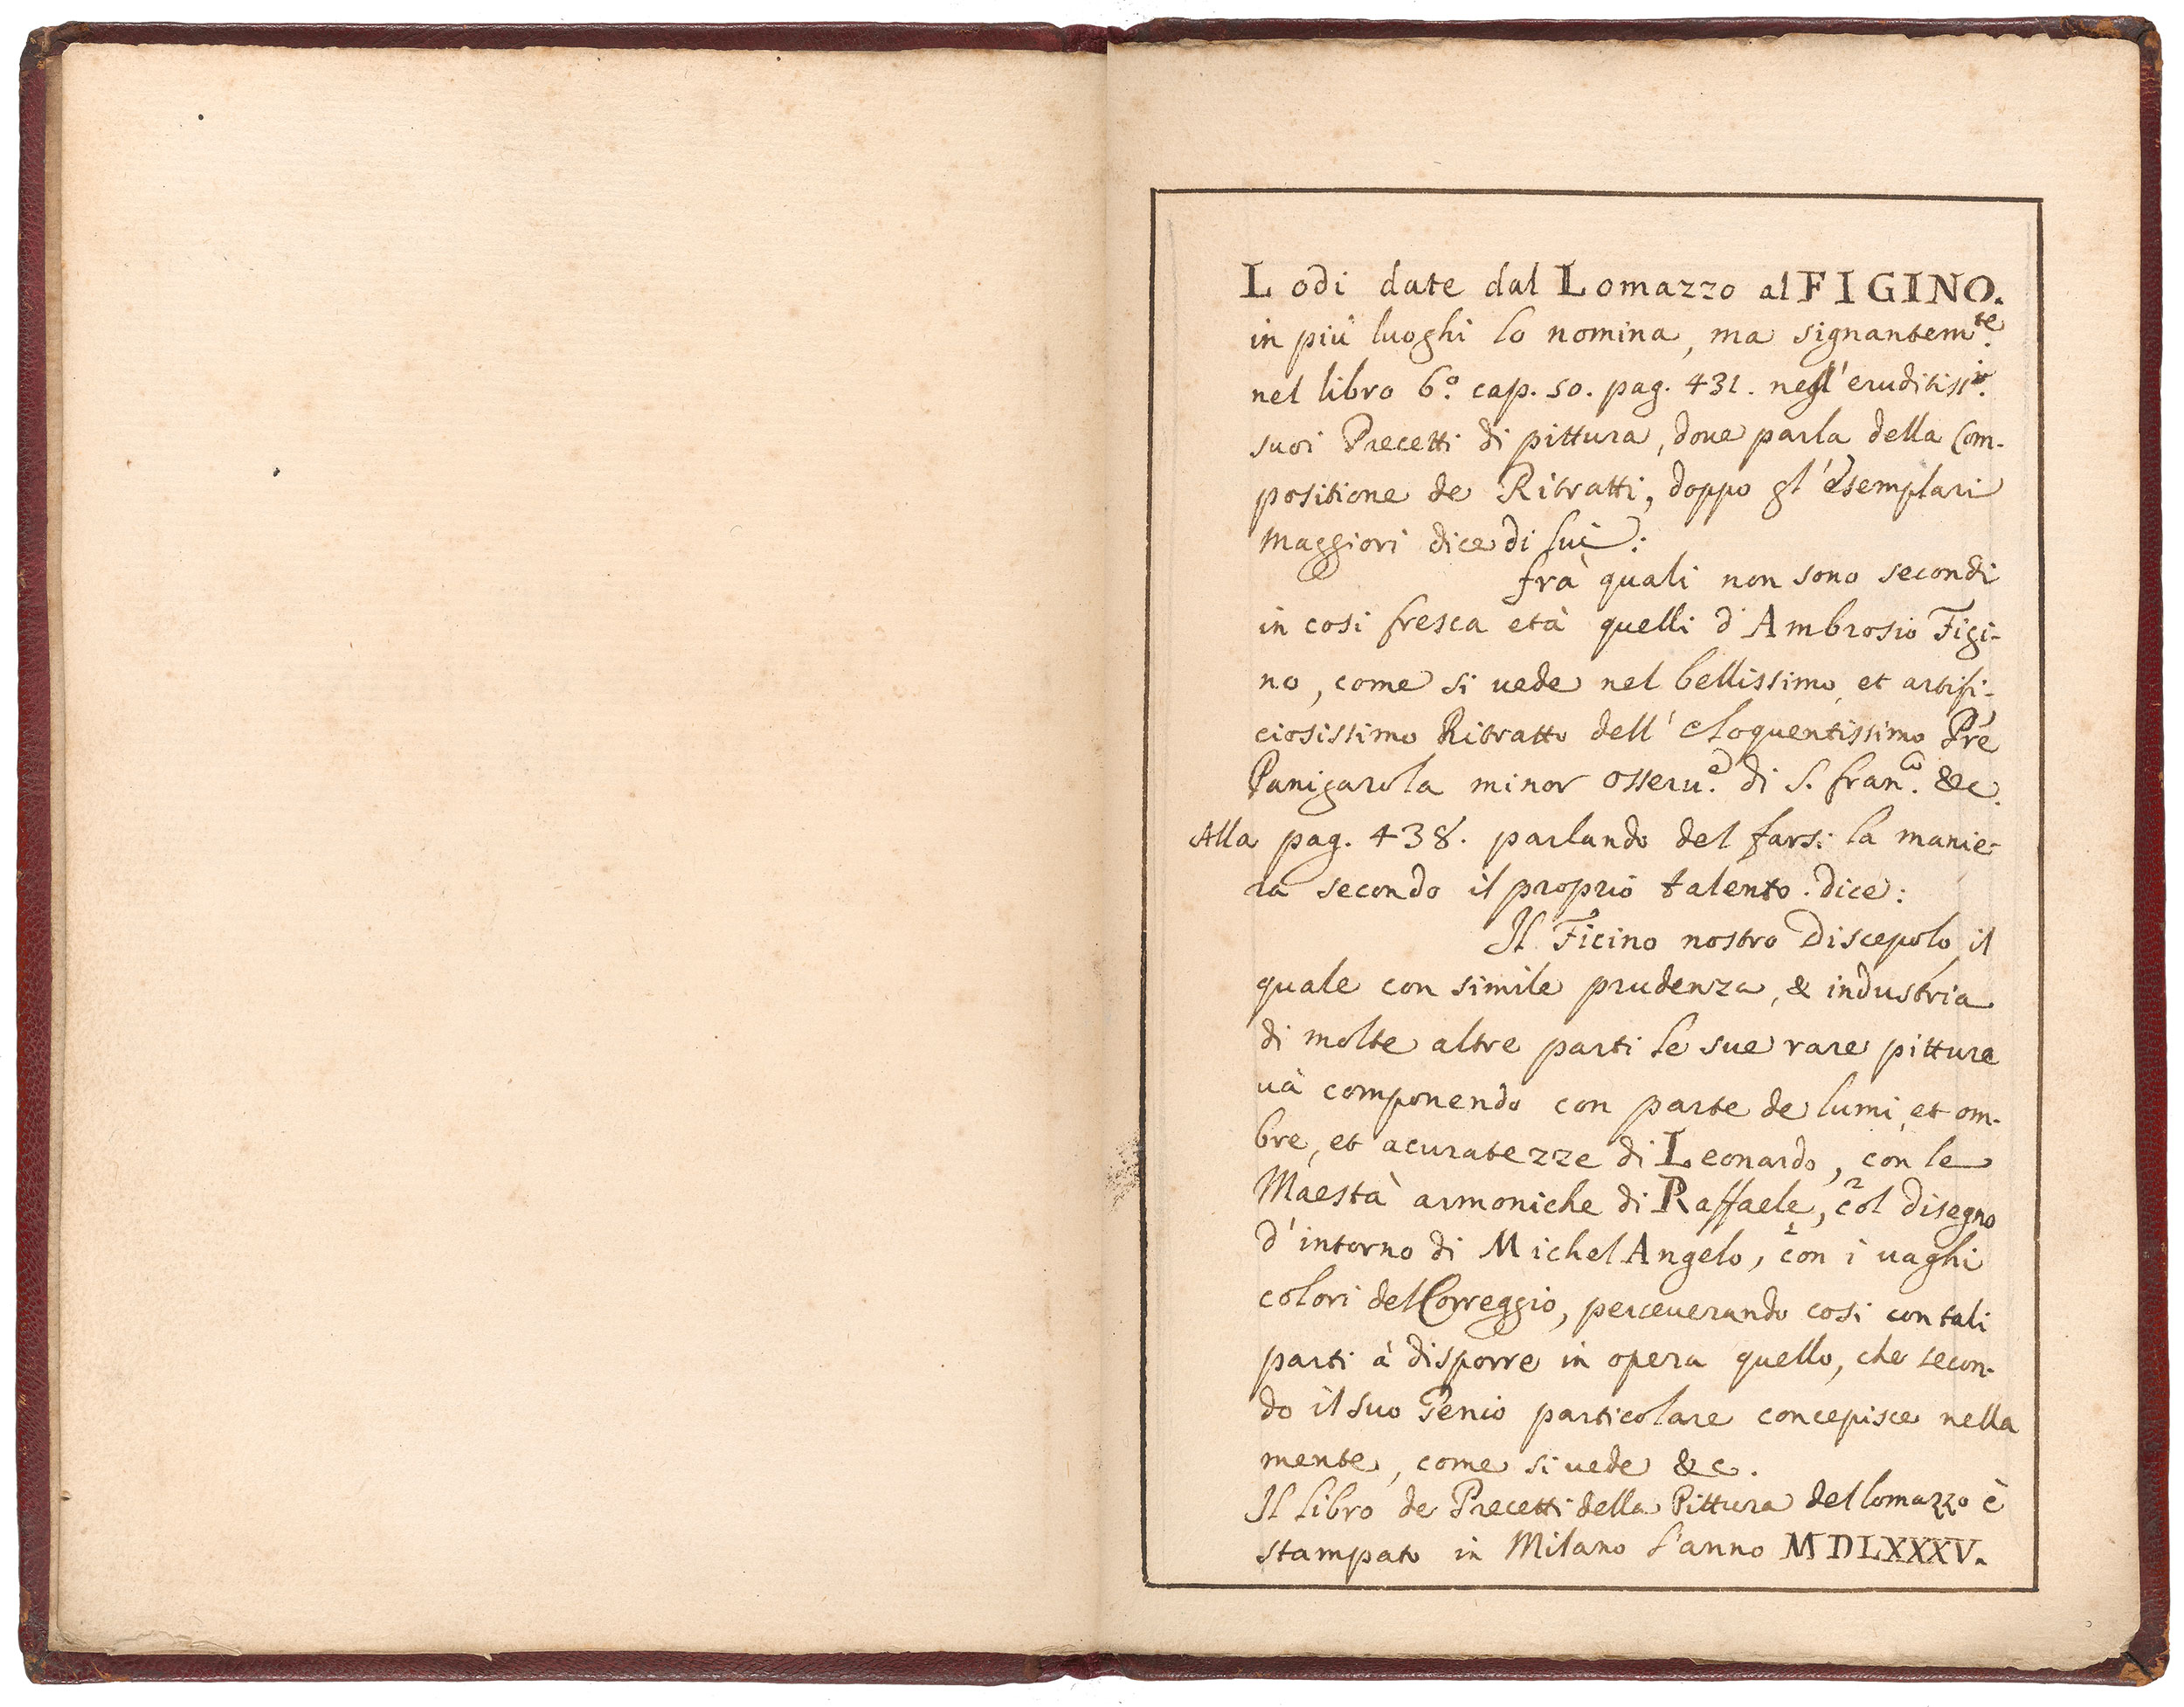 Lodi date dal Lomazzo al FIGINO.
in più luoghi lo nomina, ma signantem.te
nel libro 6.o cap. 50. pag. 431. negl'eruditiss.i
suoi Precetti di pittura, doue parla della Com-
positione de Ritratti, doppo gl'esemplari
maggiori dice di lui:
frà quali non sono secondi
in cosi fresca età quelli d'Ambrosio Figi-
no, come si uede nel bellissimo, et artifi-
ciosissimo Ritratto dell'eloquentissimo Pre
Panigarola minor osseru.e di S. fran.co &c.
Alla pag. 438. parlando del farsi la manie-
ra secondo il proprio talento. dice:
Il Ficino nostro Discepolo il
quale con simile prudenza, & industria
di molte altre parti le sue rare pitture
uà componendo con parte de lumi, et om-
bre, et acuratezze di Leonardo, con le
Maestà armoniche di Raffaele, col disegno
d'intorno di Michel Angelo, con i uaghi
colori del Correggio, perceuerando cosi con tali
parti à disporre in opera quello, che secon-
do il suo Genio particolare concepisce nella
mente, come si uede &c.
Il libro de Precetti della Pittura del lomazzo è
stampato in Milano l'anno MDLXXXV.